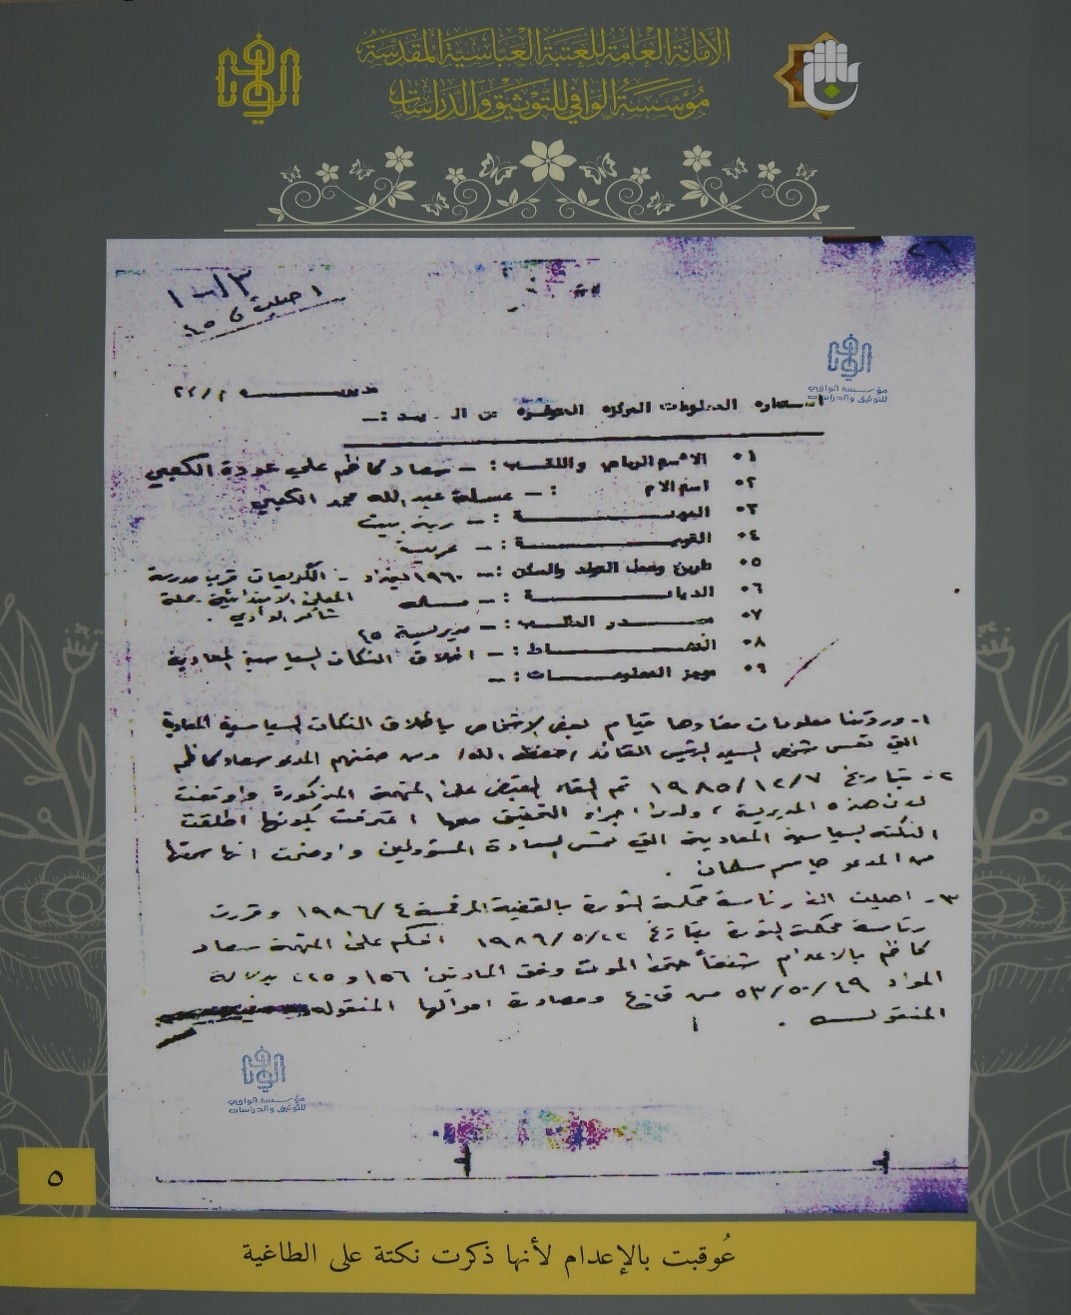 الأمانة العامة للعتبة العباسية المقدسة
مؤسسة الوافي للتوثيق والدراسات
الوافي
٢٦
١٠/٣
٢٥
الوافي
مؤسسة الوافي
للتوثيق والدراسات
استماره المعلومات المركزه المتوفره عن
٠١ الاسم الرباعي واللقب :- سعاد كاظم علي عودة الكعبي
٠٢ اسم الام :- عبد الله محمد الكعبي
٠٣ المهنة :- ربة بيت
٠٤ القومية :- عربية
٠٥ تاريخ ومحل التولد والسكن :- ١٩٦٠ بغداد - الكريعات قرب مدرسة
٠٦ الديانة :- مسلمة
الابتدائية محلة
٠٧ مصدر الطلب :- مديرية ٢٥
٠٨ النشاط :- اطلاق النكات السياسية المعادية
٠٩ موجز المعلومات :-
١- وردتنا معلومات مفادها قيام بعض الاشخاص باطلاق النكات السياسية المعادية
التي تمس شخص السيد الرئيس القائد /حفظه الله/ ومن ضمنهم المدعو سعاد كاظم
٢- بتاريخ ١٩٨٥/١٢/٧ تم القاء القبض على المتهمة المذكورة واوقفت
لدى هذه المديرية ، ولدى اجراء التحقيق معها اعترفت بكونها اطلقت
النكته السياسية المعادية التي تمس السادة المسؤولين واوضحت انها سمعتها
من المدعو جاسم سلمان .
٣- احيلت الى رئاسة محكمة الثورة بالقضية المرقمة ٤/١٩٨٦ وقررت
رئاسة محكمة الثورة بتاريخ ١٩٨٦/٥/٢٢ الحكم على المتهمة سعاد
كاظم بالاعدام شنقاً حتى الموت وفق المادتين ١٥٦ و ٢٢٥ بدلالة
المواد ٤٩/٥٠/٥٣ من ق ع ومصادرة اموالها المنقوله
المنقوله .
الوافي
مؤسسة الوافي
للتوثيق والدراسات
٥
عُوقبت بالإعدام لأنها ذكرت نكتة على الطاغية